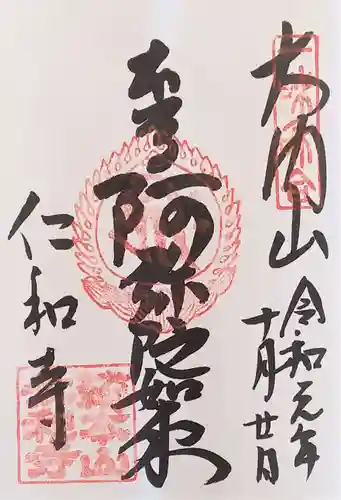 大内山
令和元年
十月廿日
本尊
阿弥陀如来
仁和寺